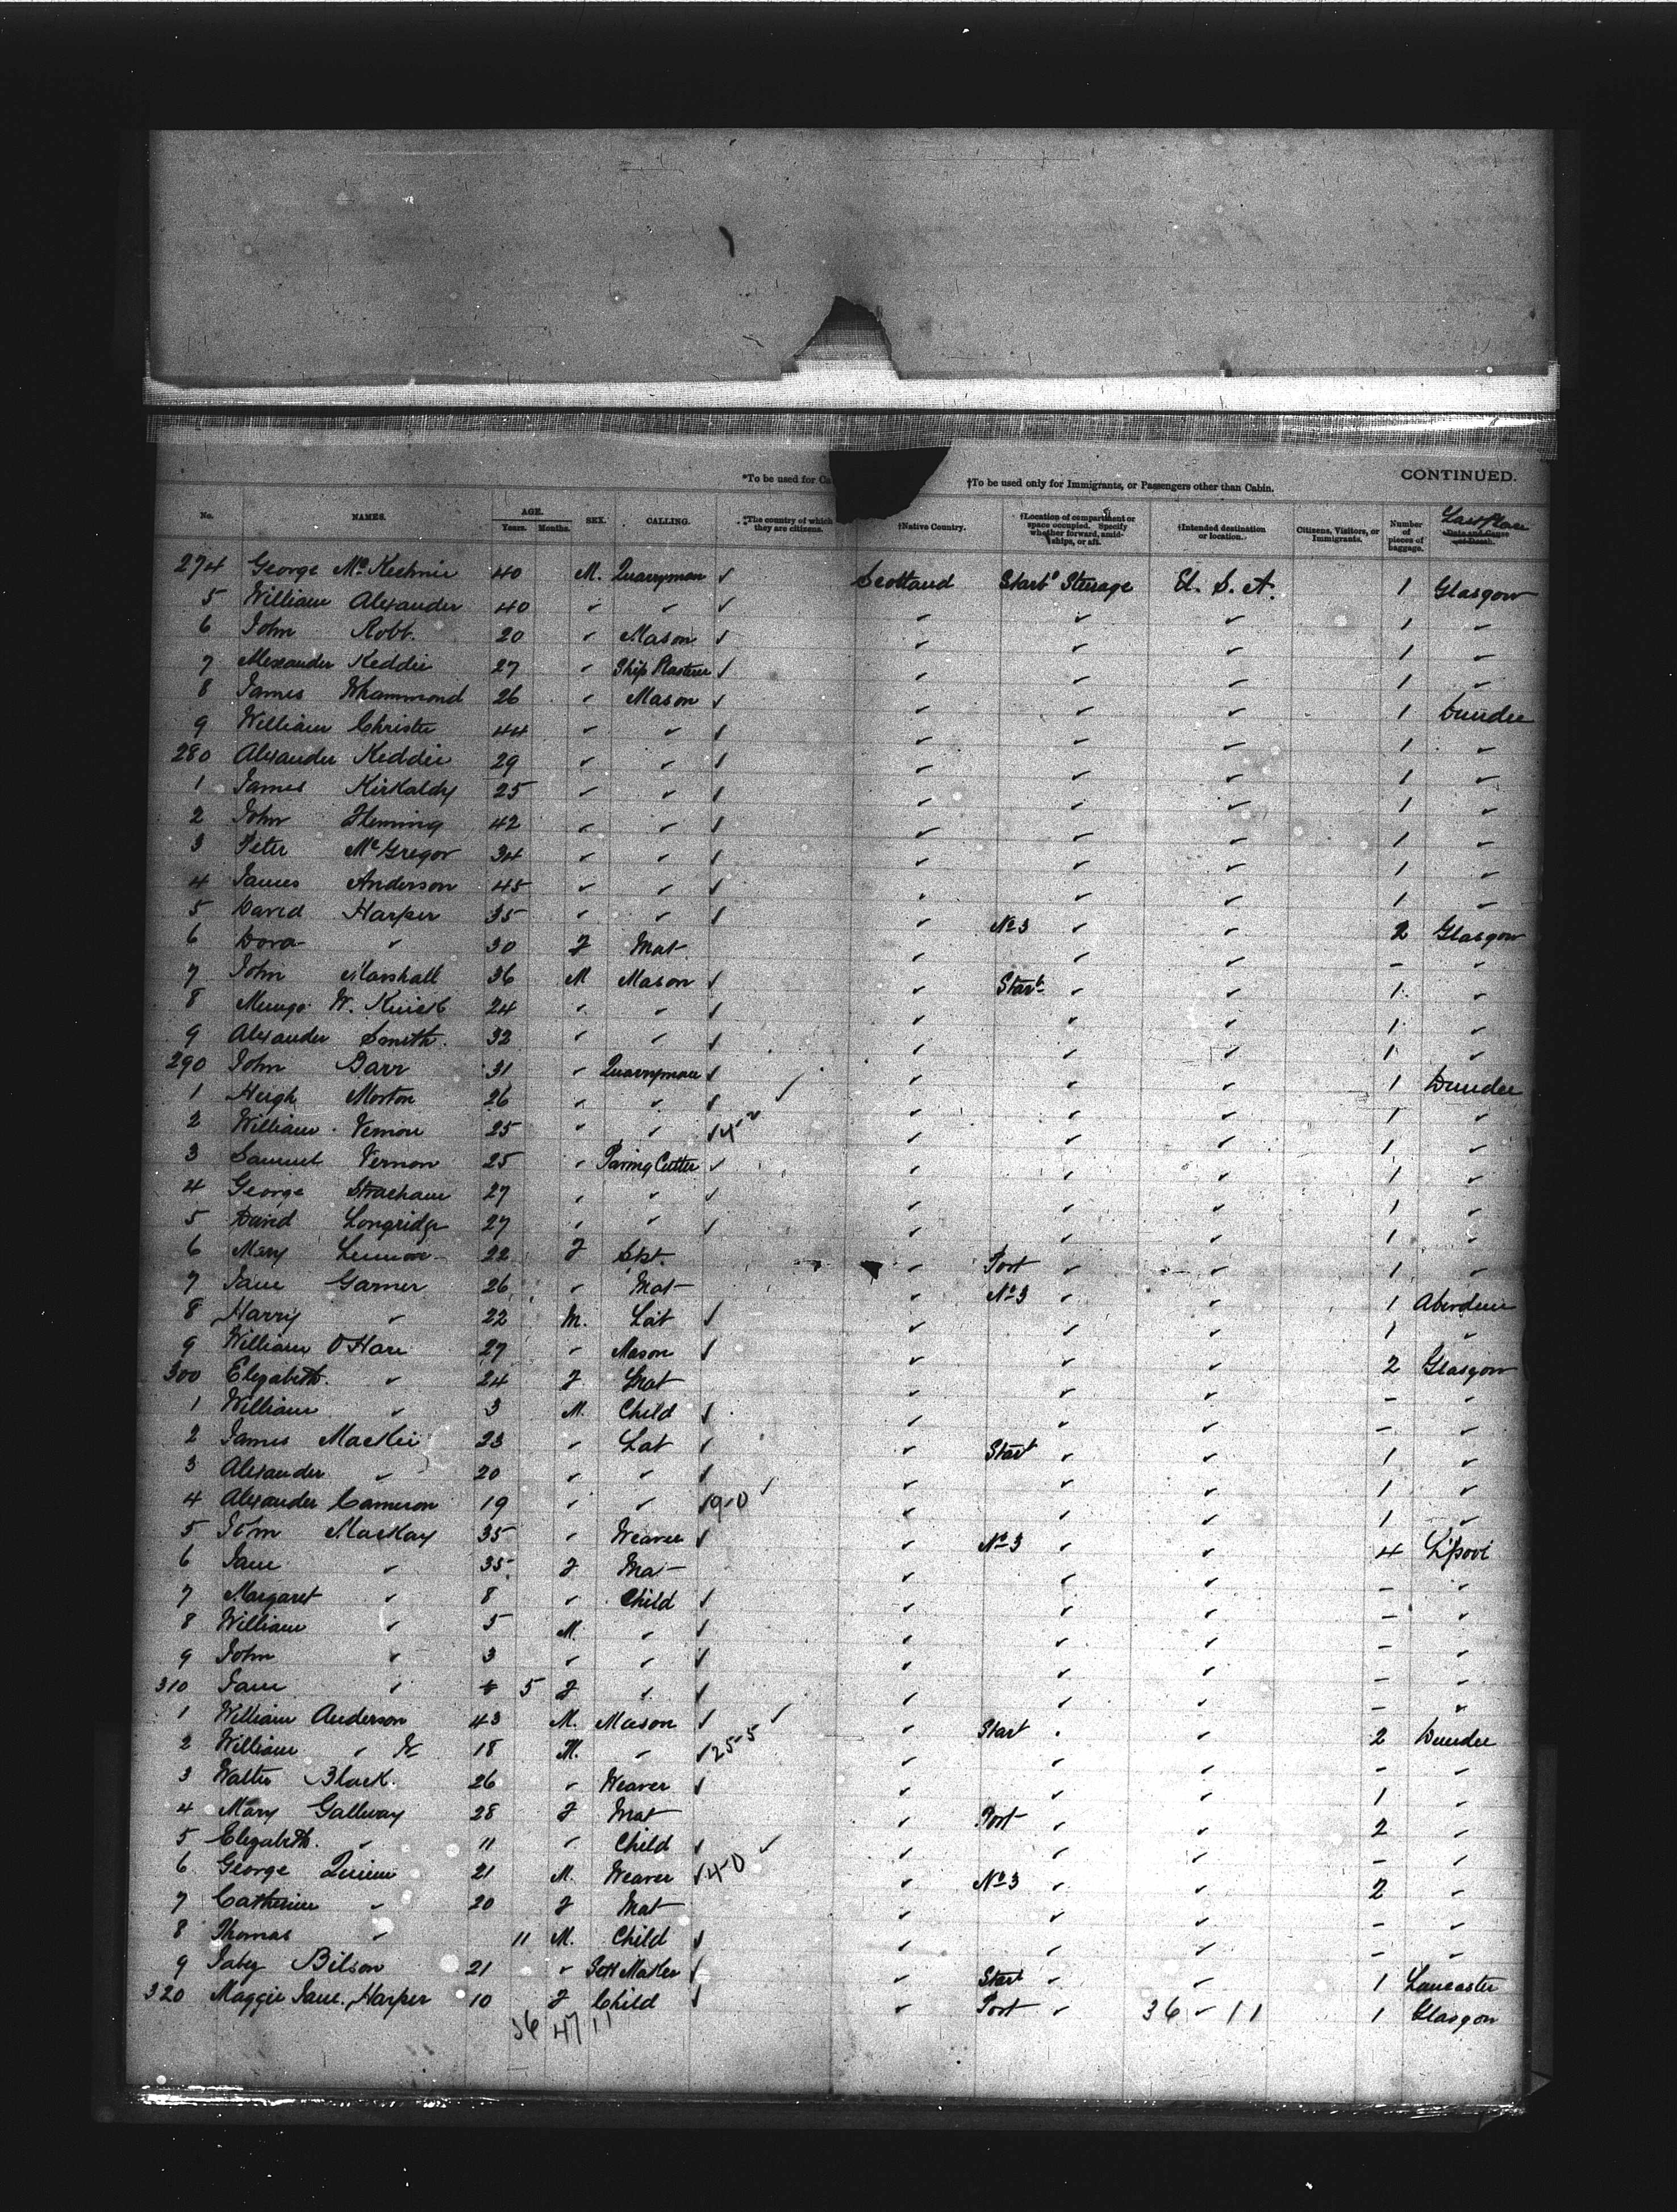 CONTINUED.
*To be used for Ca
†To be used only for Immigrants, or Passengers other than Cabin.
No. NAMES. AGE. Years. Months. SEX. CALLING. *The country of which they are citizens. †Native Country. †Location of compartment or space occupied. Specify whether forward, amidships, or aft. †Intended destination or location. Citizens, Visitors, or Immigrants. Number of pieces of baggage. Last Place Date and Cause of Death.
274 George McKechnie 40 M. Quarryman ✓ Scotland Starbd Steerage U. S. A. 1 Glasgow
5 William Alexander 40 " " ✓ " " " 1 "
6 John Robb. 20 " Mason ✓ " " " 1 "
7 Alexander Keddie 27 " Ship Plasterer ✓ " " " 1 "
8 James Whammond 26 " Mason ✓ " " " 1 Dundee
9 William Christie 44 " " ✓ " " " 1 "
280 Alexander Keddie 29 " " ✓ " " " 1 "
1 James Kirkaldy 25 " " ✓ " " " 1 "
2 John Fleming 42 " " ✓ " " " 1 "
3 Peter McGregor 34 " " ✓ " " " 1 "
4 James Anderson 45 " " ✓ " " " 1 "
5 David Harper 35 " " ✓ " No 3 " " 2 Glasgow
6 Dora " 30 F Mat " " " - "
7 John Marshall 36 M Mason ✓ " Starb " " 1 "
8 Mungo W. 24 " " ✓ " " " 1 "
9 Alexander Smith. 32 " " ✓ " " " 1 "
290 John Barr 31 " Quarryman ✓ " " " 1 Dundee
1 Hugh Morton 26 " " ✓ " " " 1 "
2 William Vernon 25 " " ✓ " " " 1 "
3 Samuel Vernon 25 " Paving Cutter ✓ " " " 1 "
4 George Strachan 27 " " ✓ " " " 1 "
5 David Longridge 27 " " ✓ " " " 1 "
6 Mary Lennox 22 F Spt. " Port " " 1 "
7 Jane Garner 26 " Mat " No 3 " " 1 Aberdeen
8 Harry " 22 M. Lab ✓ " " " 1 "
9 William O'Hare 27 " Mason ✓ " " " 2 Glasgow
300 Elizabeth. " 24 F Mat " " " - "
1 William " 3 M. Child ✓ " " " - "
2 James Mackie 23 " Lab ✓ " Starb " " 1 "
3 Alexander " 20 " " ✓ " " " 1 "
4 Alexander Cameron 19 " " ✓ 9-0 " " " 1 "
5 John MacKay 35 " Weaver ✓ " No 3 " " 4 L'pool
6 Jane " 35 F Mat " " " - "
7 Margaret " 8 " Child ✓ " " " - "
8 William " 5 M. " ✓ " " " - "
9 John " 3 " " ✓ " " " - "
310 Jane " 5 F " ✓ " " " - "
1 William Anderson 43 M. Mason ✓ " Starb " " 2 Dundee
2 William " W 18 M. " ✓ 25-5 " " " - "
3 Walter Black. 26 " Weaver ✓ " " " 1 "
4 Mary Gallway 28 F Mat " Port " " 2 "
5 Elizabeth. " 11 " Child ✓ " " " - "
6 George Quinn 21 M. Weaver ✓ 4-0 " No 3 " " 2 "
7 Catherine " 20 F Mat " " " - "
8 Thomas " 11 M. Child ✓ " " " - "
9 Jabez Bilson 21 " Maker ✓ " Starb " " 1 Lancaster
320 Maggie Jane Harper 10 F Child ✓ " Port " 36 - 11 1 Glasgow
36 47 11